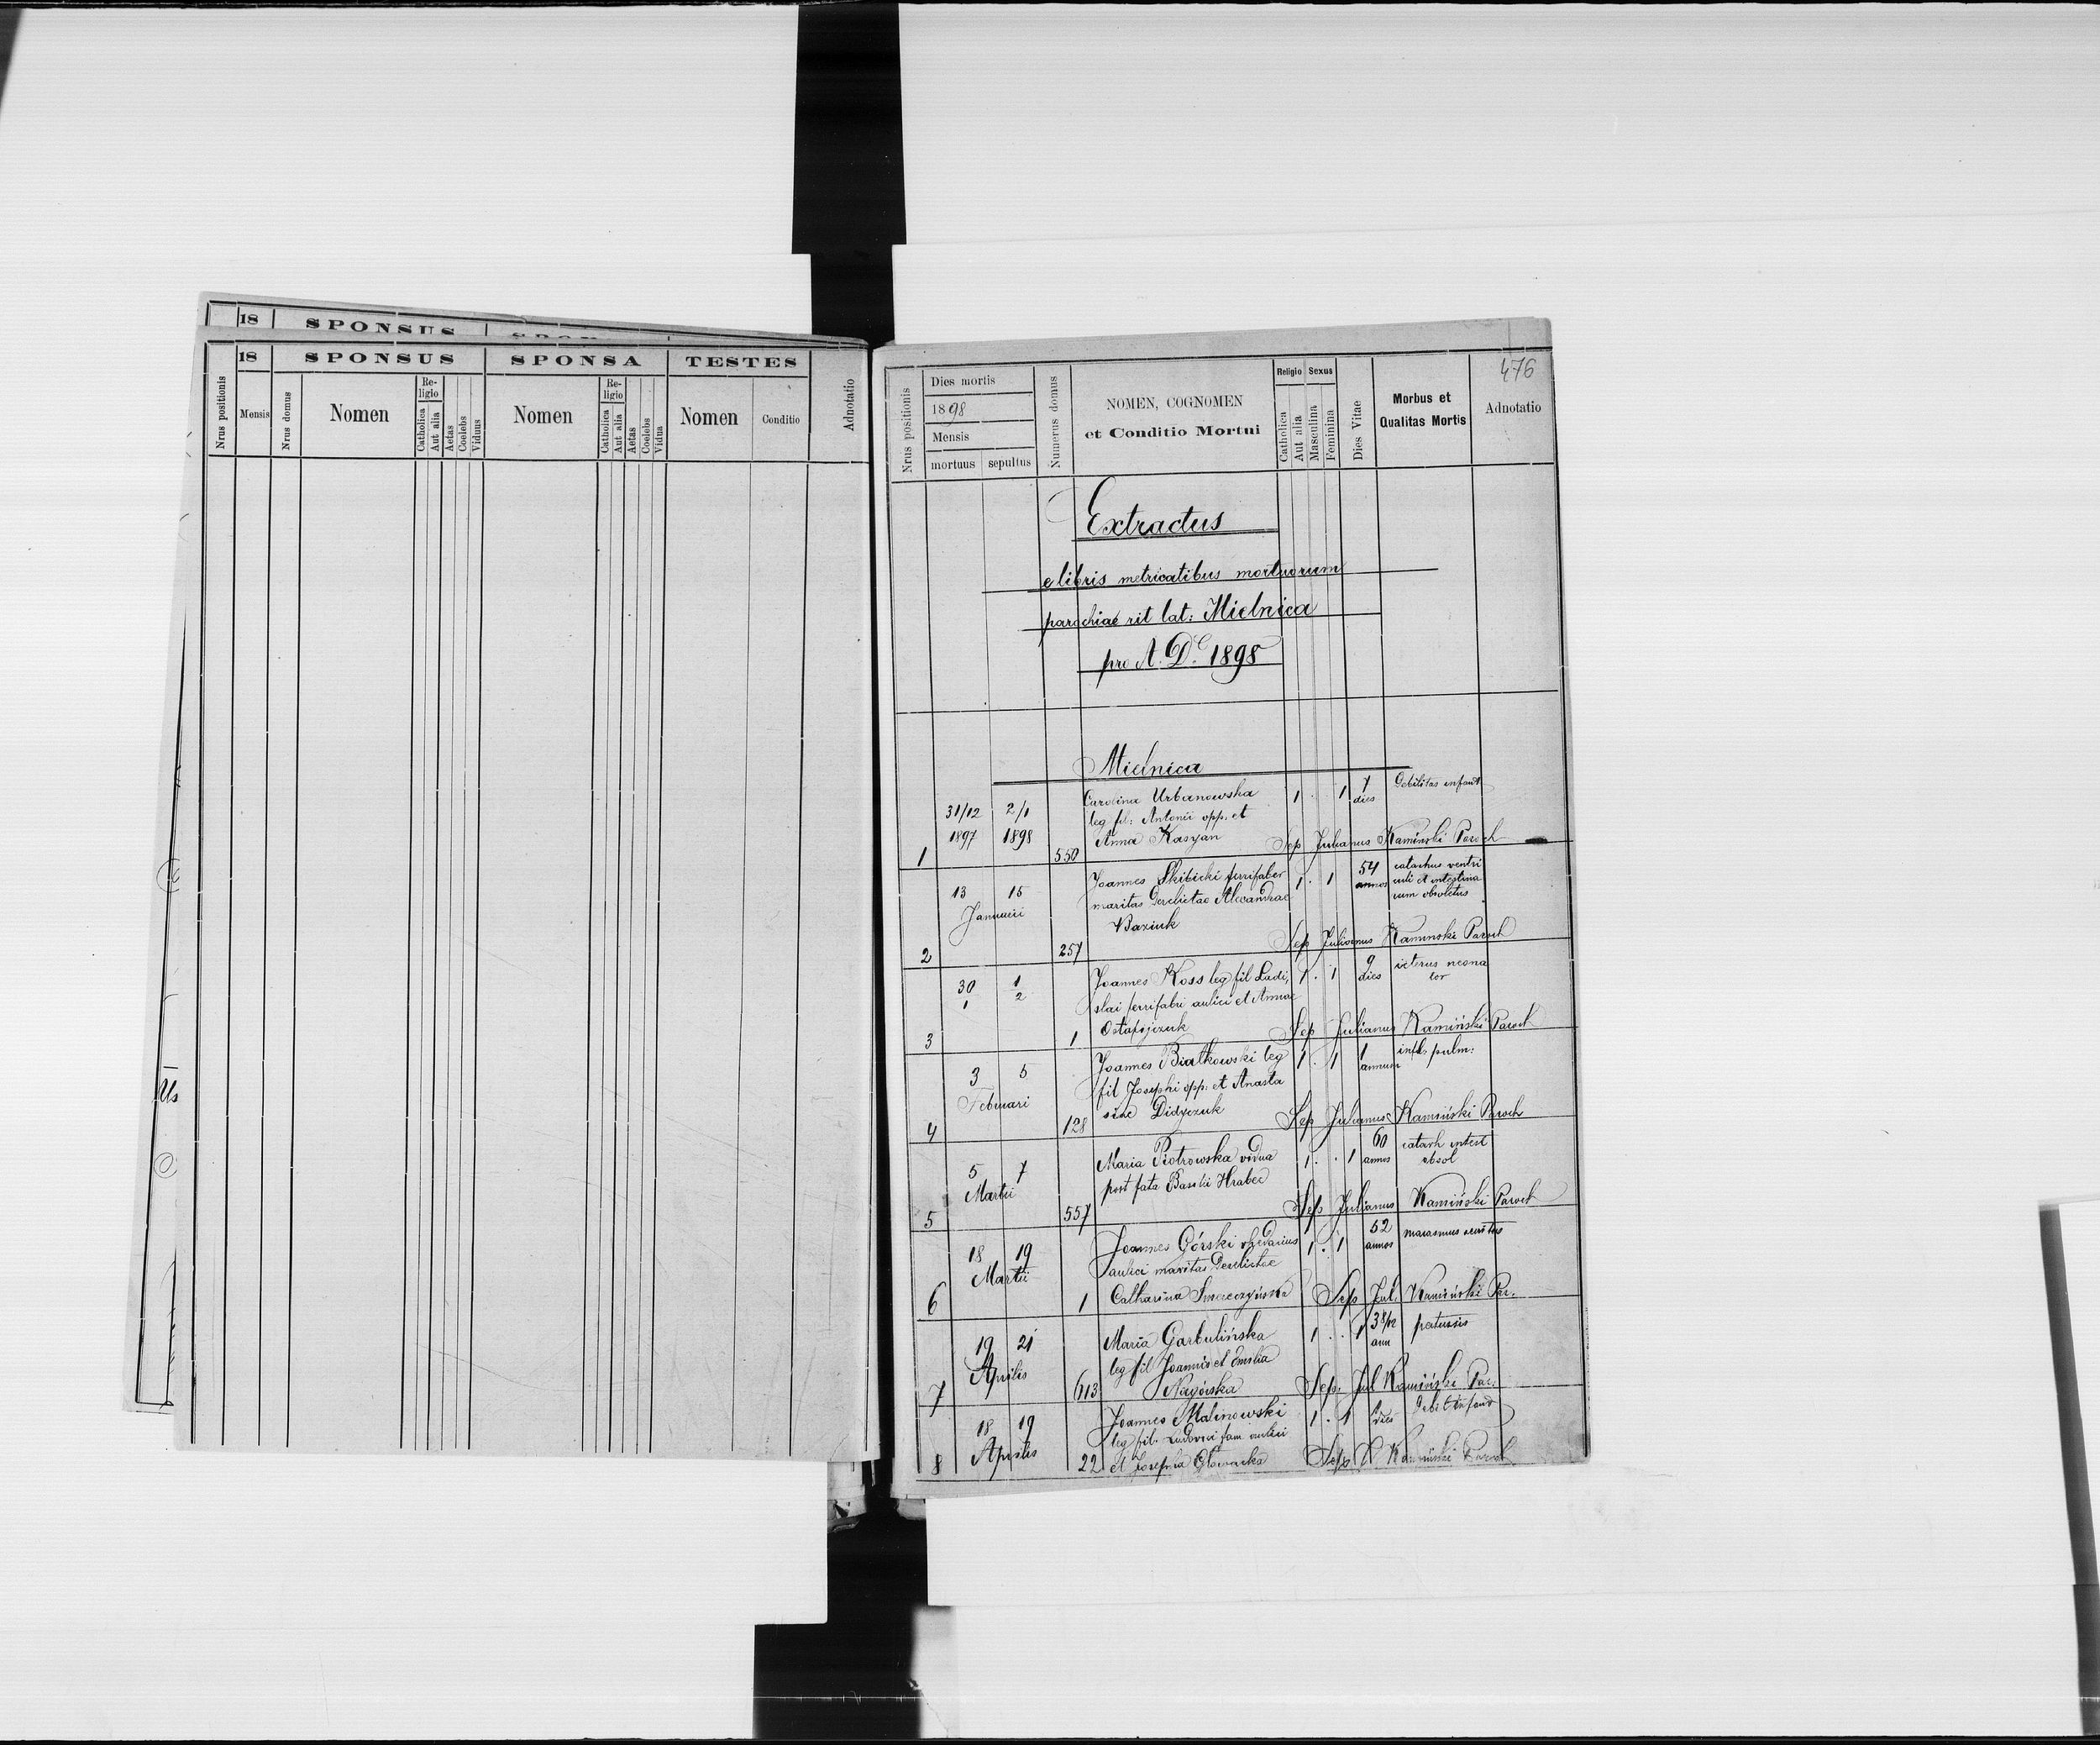 18 SPONSUS
18 SPONSUS SPONSA TESTES
Nrus positionis Mensis Nrus domus Nomen Re-ligio Catholica Aut alia Aetas Coelebs Viduus Nomen Re-ligio Catholica Aut alia Aetas Coelebs Vidua Nomen Conditio Adnotatio
476
Nrus positionis Dies mortis 1898 Mensis mortuus sepultus Numerus domus
NOMEN, COGNOMEN
et Conditio Mortui
Religio Sexus
Catholica Aut alia Masculina Feminina Dies Vitae
Morbus et
Qualitas Mortis
Adnotatio
Extractus
e libris metricatibus mortuorum
parochiae rit lat: Mielnica
pro A. D. 1898
Mielnica
Carolina Urbanowska 1 . 1 7 Debilitas infant
31/12 2/1 leg fil: Antonii opp. et dies
1897 1898 Anna Kasyan
1 550 Sep Julianus Kamiński Paroch
Joannes Skibicki ferrifaber 1 . 1 54 catarhus ventri
13 15 maritus Derelictae Alexandrae annos culi et intestina
Januarii Baziuk rum obsoletus
2 257 Sep Julianus Kaminski Paroch
Joannes Koss leg fil Ladi, 1 . 1 9 icterus neona
30 1 slai ferrifabri aulici et Annae dies tor
1 2
3 1 Ostafijczuk Sep Julianus Kamiński Paroch
Joannes Białkowski leg 1 . 1 1 infl. pulm:
3 5 fil Josephi opp: et Anasta annum
Februari siae Didyczuk
4 128 Sep Julianus Kamiński Paroch
Maria Piotrowska vidua 1 . . 1 60 catarh intest
5 7 post fata Basilii Hrabec annos obsol
Martii
5 557 Sep Julianus Kamiński Paroch
Joannes Górski rhedarius 1 . 1 52 marasmus
18 19 aulici maritus Derelictae annos
Martii
6 1 Catharina Sep Jul. Kamiński Par.
Maria Garbulińska 1 . . 1 3 8/12 pertussis
19 21 leg fil Joannis et Emilia ann
Aprilis
7 613 Nagórska Sep. Jul Kamiński Par.
Joannes Malinowski 1 . 1 dies Debil infant
18 19 leg fil. Ludovici fam aulici
Aprilis
8 22 et Josepha Głowacka Sep J Kamiński Paroch